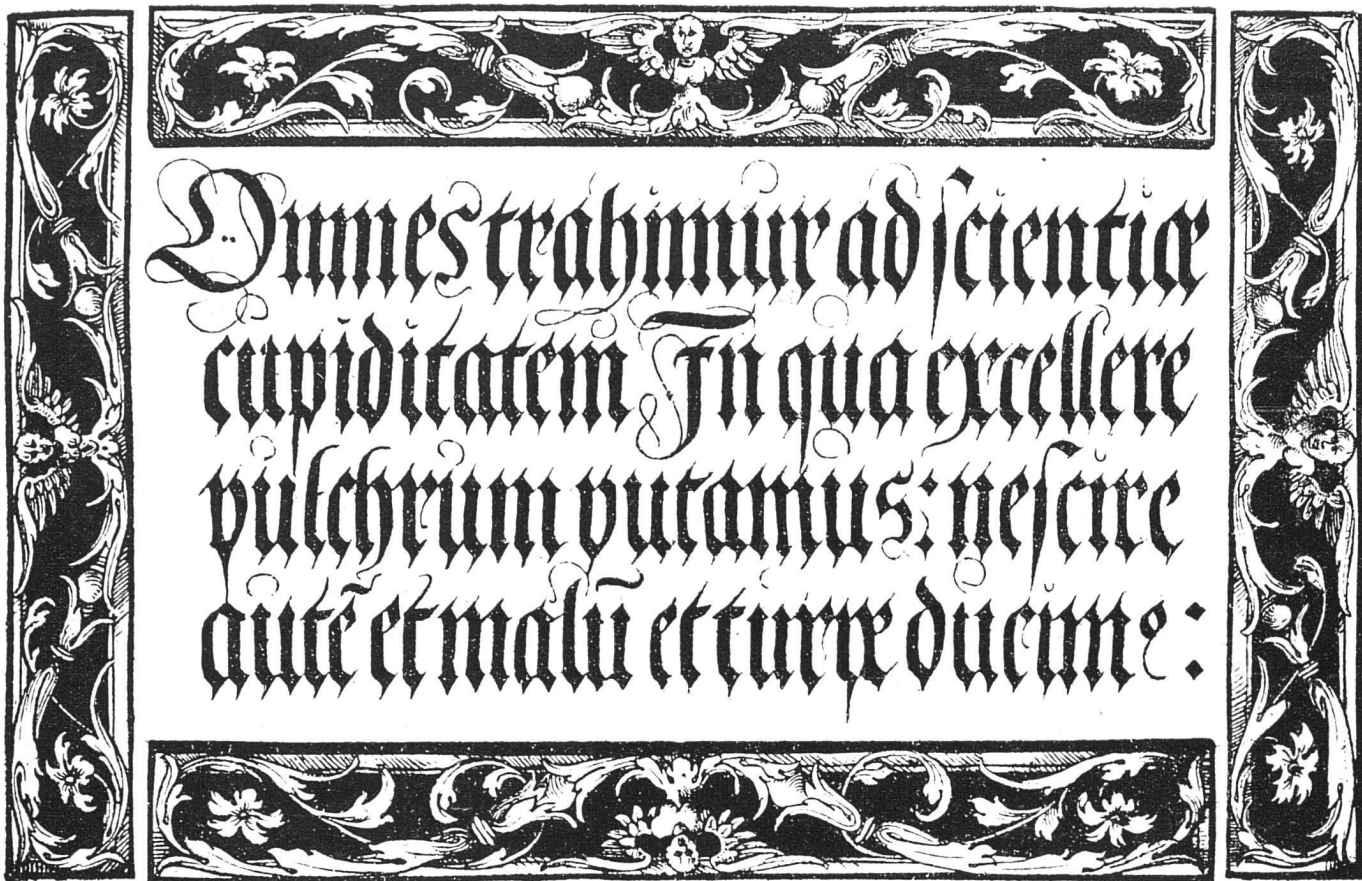 Omnes trahimur ad scientiæ
cupiditatem In qua excellere
pulchrum putamus: nescire
autē et malū et turpe ducimꝰ: